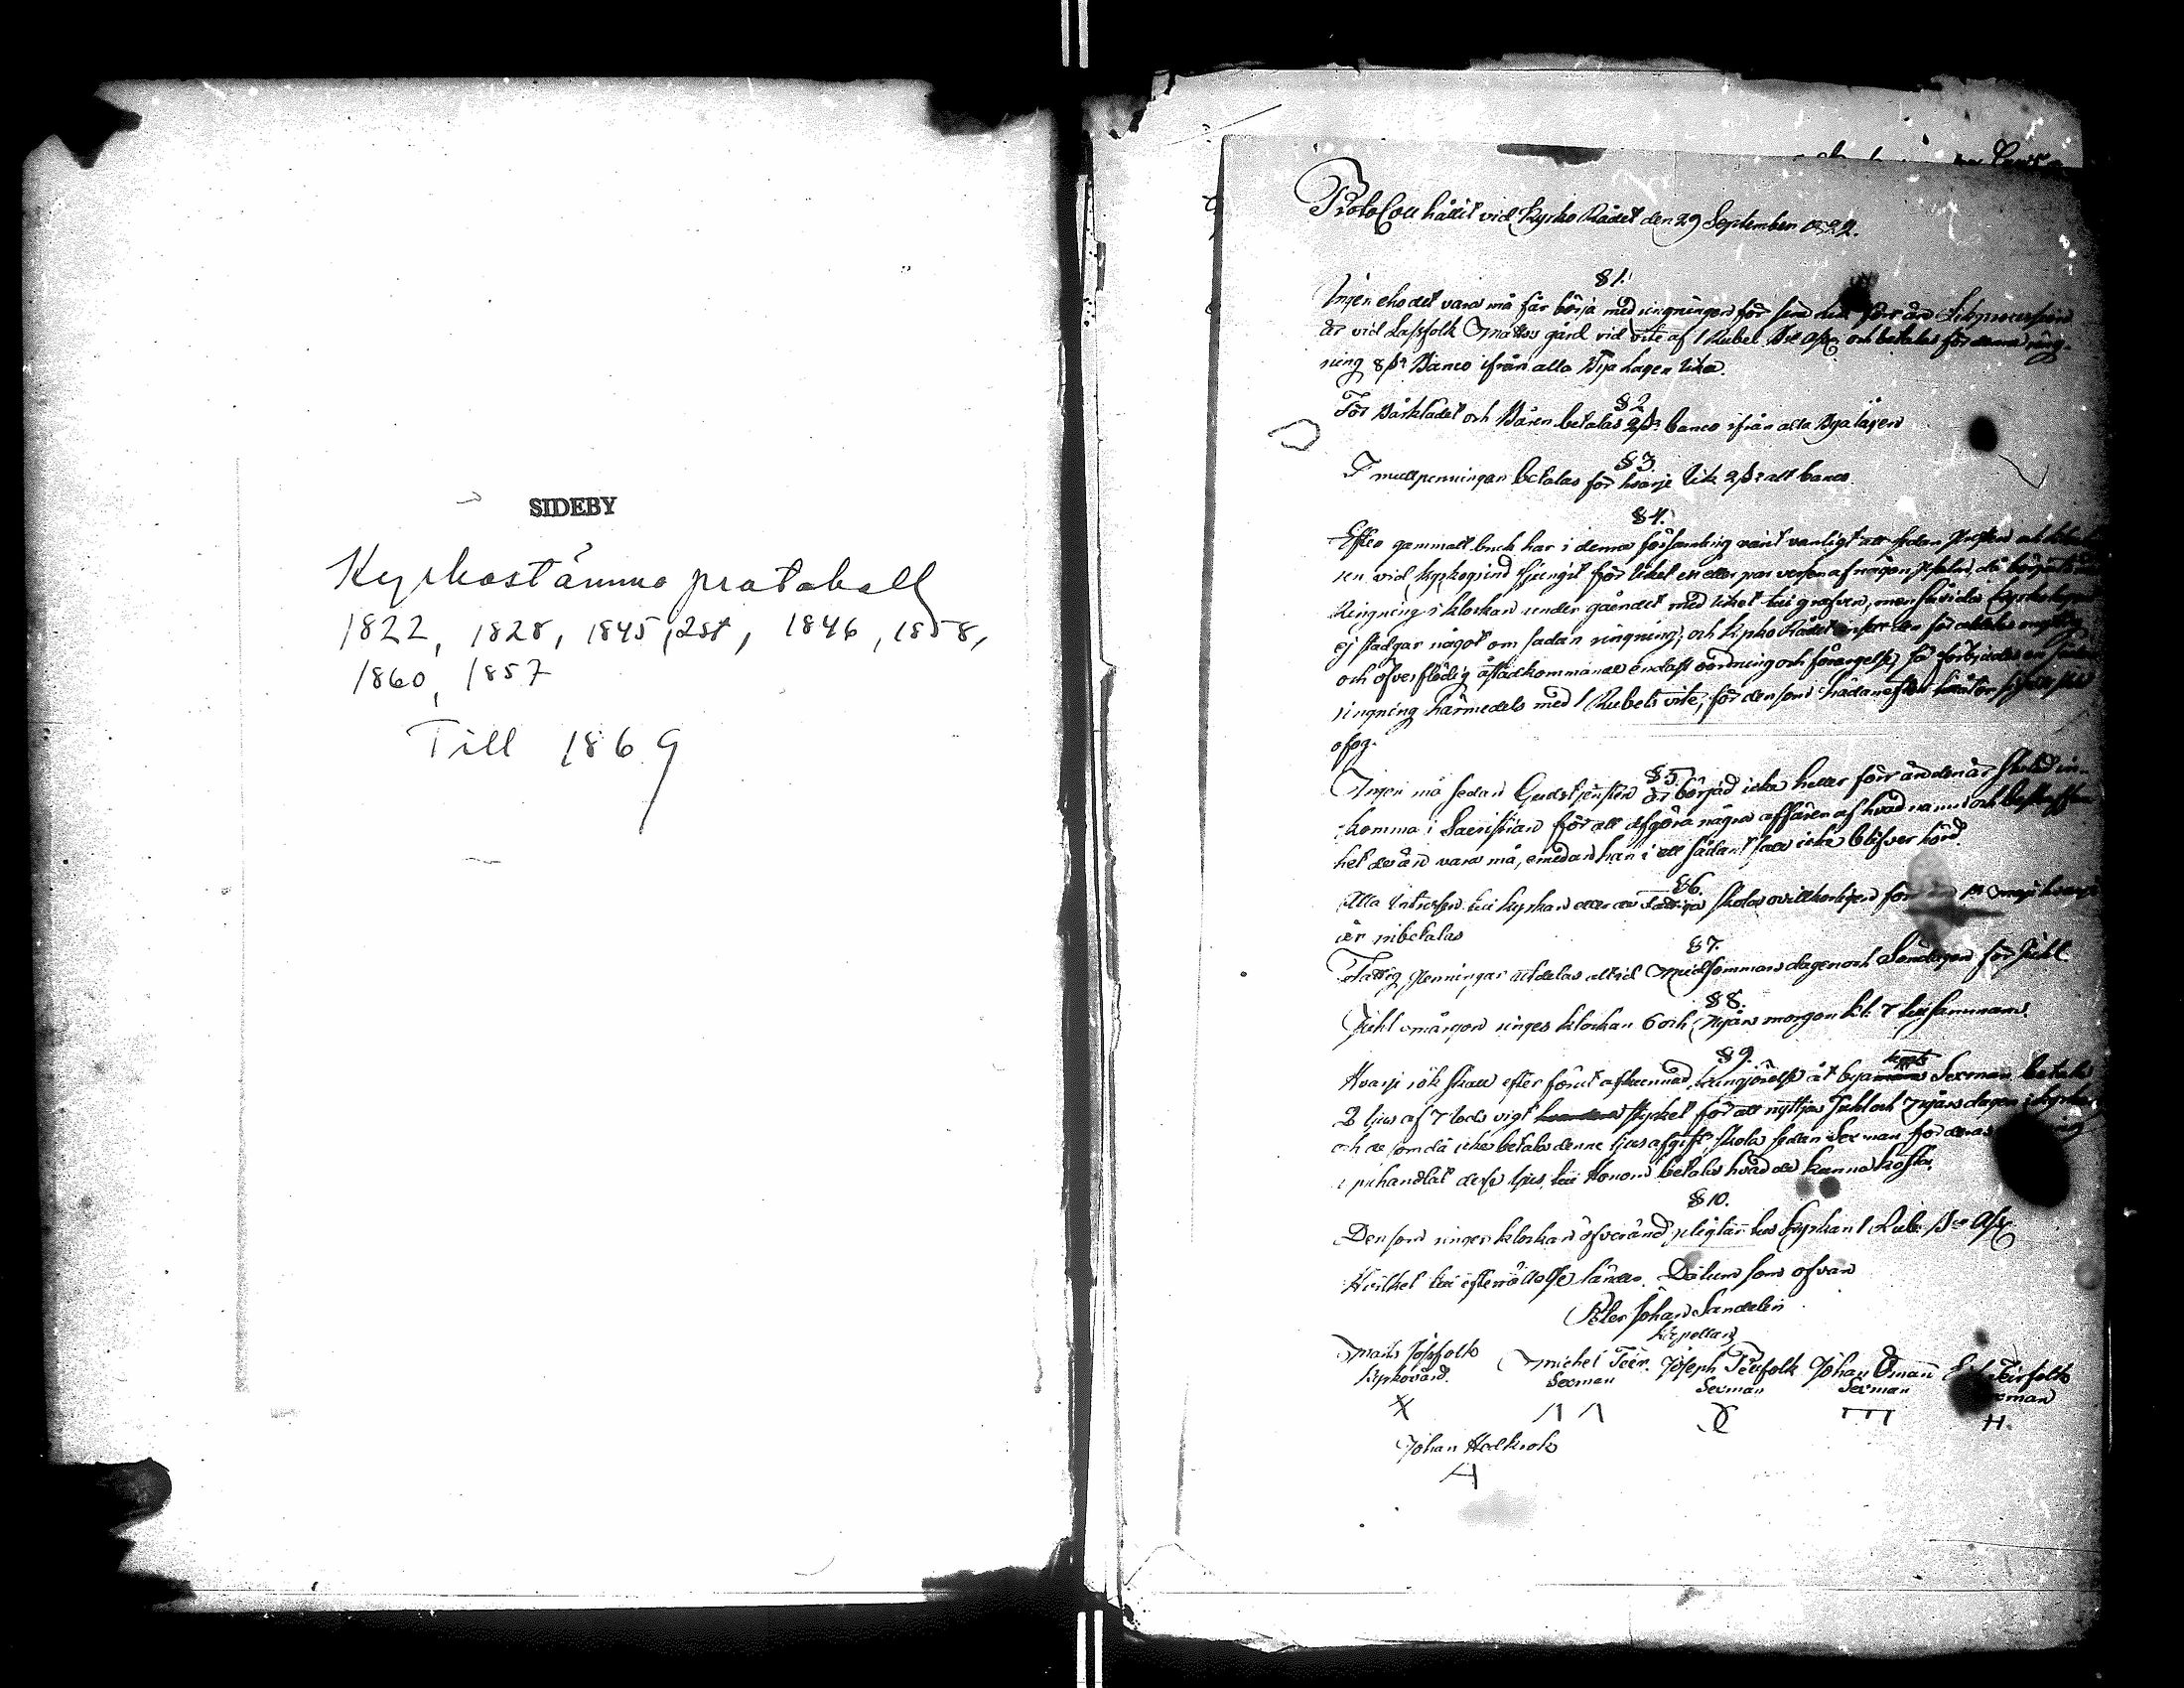 SIDEBY
Kyrkostämmo protokoll
1822, 1828, 1845, 2st, 1846, 1858,
1860, 1857
Till 1869
ProtoColl hållit vid Kyrko Rådet den 29 September 1822.
§ 1.
Ingen eho det vara må får börja med ringningen för sina lik förr än Likprocession
är vid Lassfolk Matts gård vid vite af 1 Rubel och betalas för denna ring-
ning 8 Banco ifrån alla Bya lagen lika.
§ 2
För Bårklädet och Båren betalas 2 banco ifrån alla Byalagen
§ 3.
I mullpenningar betalas för hvarje Lik 2 allt banco.
§ 4.
Efter gammalt bruk har i denna församling varit vanligt att sedan
sen vid kyrkogrind sjungit för liket en eller par verser af någon Psalm, då börjat
Ringning i klockan under gåendet med liket till grafven, men såvida Kyrkolagen
ej stadgar något om sådan ringning, och Kyrko Rådet anser den för
och öfverflödig åstadkommande endast oordning och förargelse, så förbjudes en sådan
ringning härmedels med 1 Rubels vite, för den som hädanefter
ofog.
§ 5.
Ingen må sedan Gudstjensten är börjad icke heller förr än den är slutad in-
komma i Sacristian för att afgöra några affärer af hvad namn och beskaffen
het de än vara må, emedan han i ett sådant fall icke blifver hörd.
§ 6.
Alla Intressen till kyrkan eller de fattiga skola ovillkorligen för maji hvarje
år inbetalas
§ 7.
Fattig Penningar utdelas alltid Midsommars dagen och Söndagen för Juhl
§ 8.
Juhl morgon ringes klockan 6 och Nyårs morgon kl. 7 till sammans.
§ 9.
Hvarje rök skall efter förut afkunnad kungörelse åt byamans Sexman betala
2 ljus af 7 lods vigt stycket för att nyttjas Juhl och Nyårs dagen i kyrkan
och de som då icke betala denne ljus afgift skola sedan Sexman för deras
inhandlat desse ljus, till Honom betala hvad de kunna kosta.
§ 10.
Den som ringer klockan öfverände pligtar till Kyrkan 1 Rub.
Hvilket till efterrättelse länder. Datum som ofvan
Peter Johan Sandelin
Kapellan
Matts Jossfolk Michel Teir. Joseph Teirfolk Johan Öman Teirfolk
Kyrkovärd. Sexman Sexman Sexman
H.
Johan Hallkrok
A